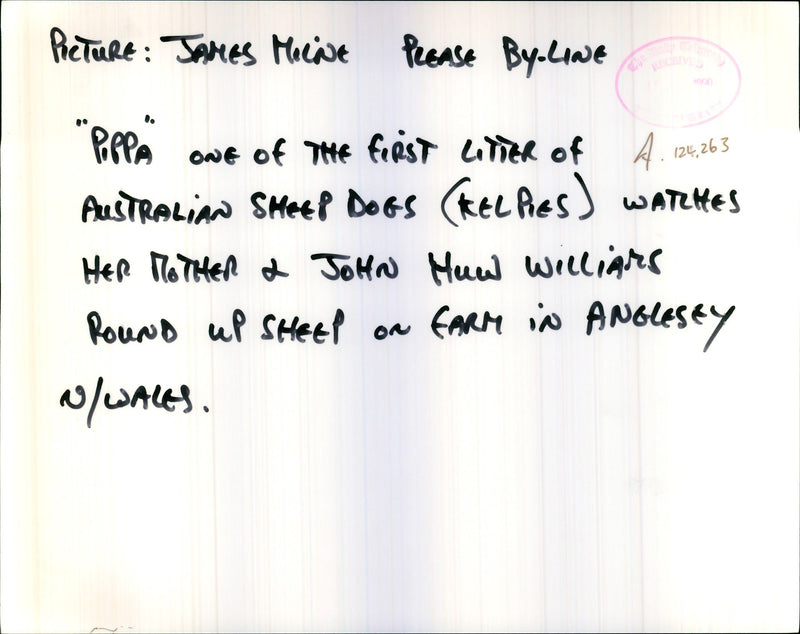 PICTURE: JAMES MILNE PLEASE BY-LINE
RECEIVED
"PIPPA" ONE OF THE FIRST LITTER OF
A. 124,263
AUSTRALIAN SHEEP DOGS (KELPIES) WATCHES
HER MOTHER & JOHN HUW WILLIAMS
ROUND UP SHEEP ON FARM IN ANGLESEY
N/WALES.